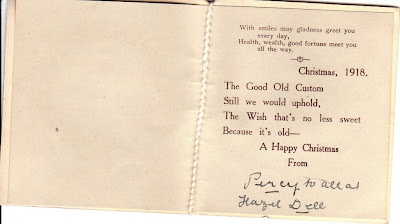 With smiles may gladness greet you
every day,
Health, wealth, good fortune meet you
all the way.
Christmas, 1918.
The Good Old Custom
Still we would uphold,
The Wish that's no less sweet
Because it's old—
A Happy Christmas
From
Percy to all at
Hazel Dell